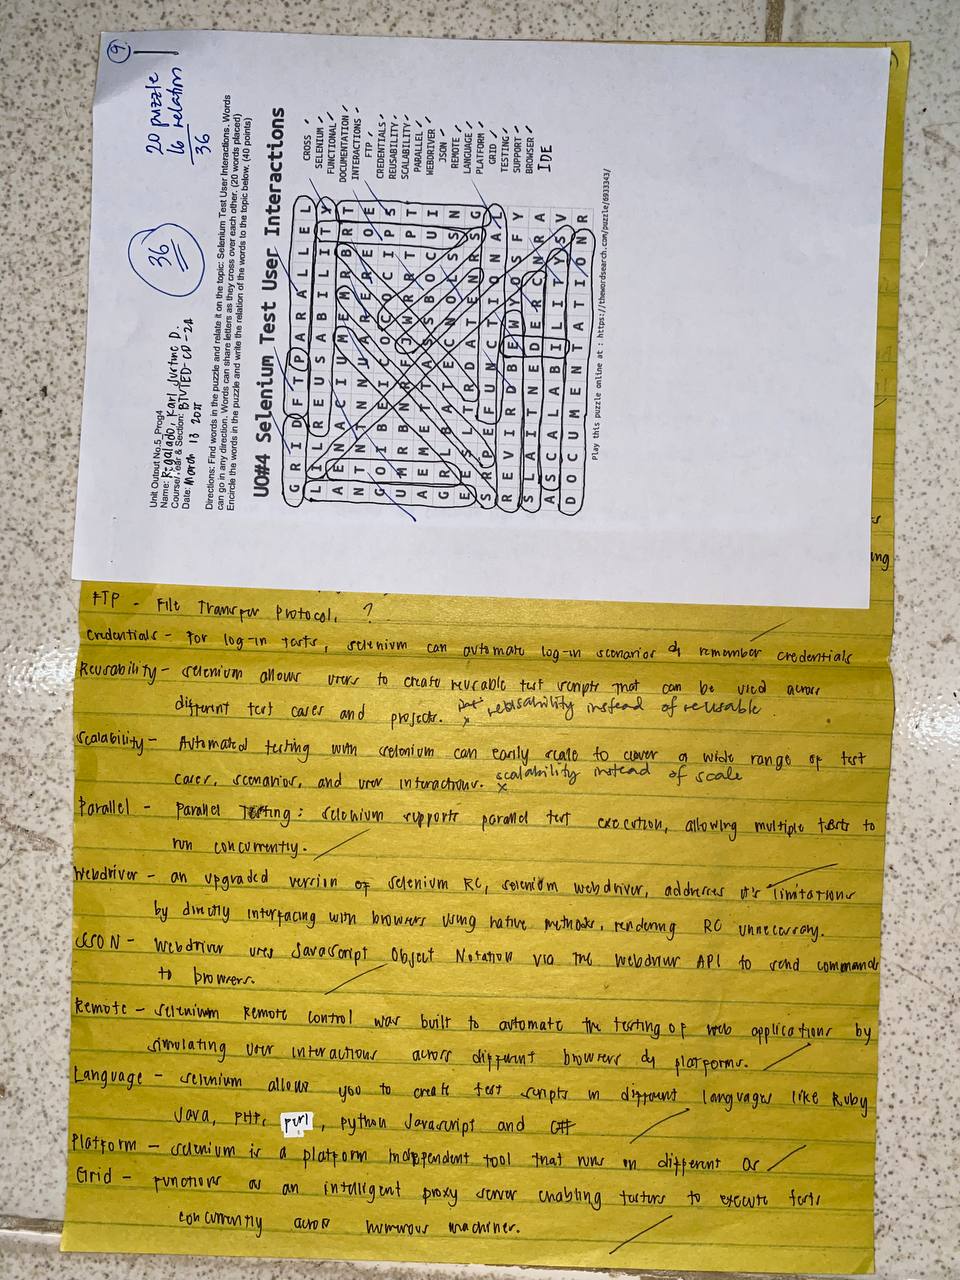 9
20 puzzle
16 relation
36
36
Unit Output No.5_Prog4
Name: Rigalado, Karl Justine D.
Course/Year & Section: BTVTED-CP-2A
Date: March 13 2025
Directions: Find words in the puzzle and relate it on the topic: Selenium Test User Interactions. Words
can go in any direction. Words can share letters as they cross over each other. (20 words placed)
Encircle the words in the puzzle and write the relation of the words to the topic below. (40 points)
UO#4 Selenium Test User Interactions
G R I D F T P A R A L L E L
L I L R E U S A B I L I T Y
S R P E F U N C T I O N A L
D O C U M E N T A T I O N R
CROSS
SELENIUM
FUNCTIONAL
DOCUMENTATION
INTERACTIONS
FTP
CREDENTIALS
REUSABILITY
SCALABILITY
PARALLEL
WEBDRIVER
JSON
REMOTE
LANGUAGE
PLATFORM
GRID
TESTING
SUPPORT
BROWSER
IDE
Play this puzzle online at : https://thewordsearch.com/puzzle/6933343/
FTP - File Transfer Protocol. ?
Credentials - For log-in tests, selenium can automate log-in scenarios & remember credentials
Reusability - selenium allows users to create reusable test scripts that can be used across
different test cases and projects. reusability instead of reusable
Scalability - Automated testing with selenium can easily scale to cover a wide range of test
cases, scenarios, and user interactions. x scalability instead of scale
Parallel - Parallel Testing: selenium supports parallel test execution, allowing multiple tests to
run concurrently.
Webdriver - an upgraded version of selenium RC, selenium webdriver, addresses it's limitations
by directly interfacing with browsers using native methods, rendering RC unnecessary.
JSON - Webdriver uses JavaScript Object Notation via the webdriver API to send commands
to browsers.
Remote - selenium Remote control was built to automate the testing of web applications by
simulating user interactions across different browsers & platforms.
Language - selenium allows you to create test scripts in different languages like Ruby
Java, PHP, perl, python Javascript and C#
Platform - selenium is a platform independent tool that runs on different os
Grid - Functions as an intelligent proxy server enabling testers to execute tests
concurrently across numerous machines.